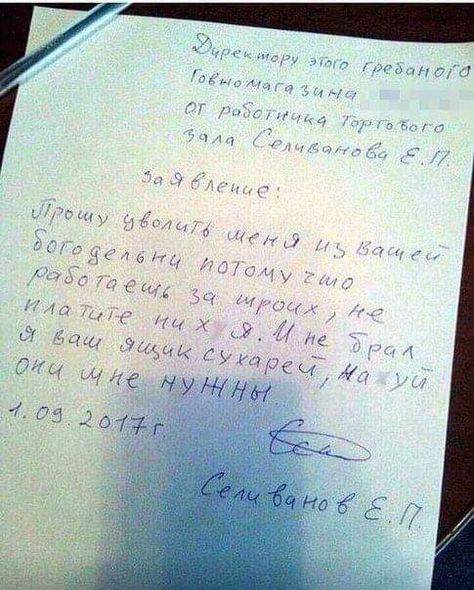 Директору этого гребаного
Говномагазина
от работника торгового
зала Селиванова Е.П.
Заявление:
Прошу уволить меня из вашей
богодельни потому что
работаешь за троих, не
платите ни х я. И не брал
я ваш ящик сухарей, на хуй
они мне нужны
1.09.2017г.
Селиванов Е.П.